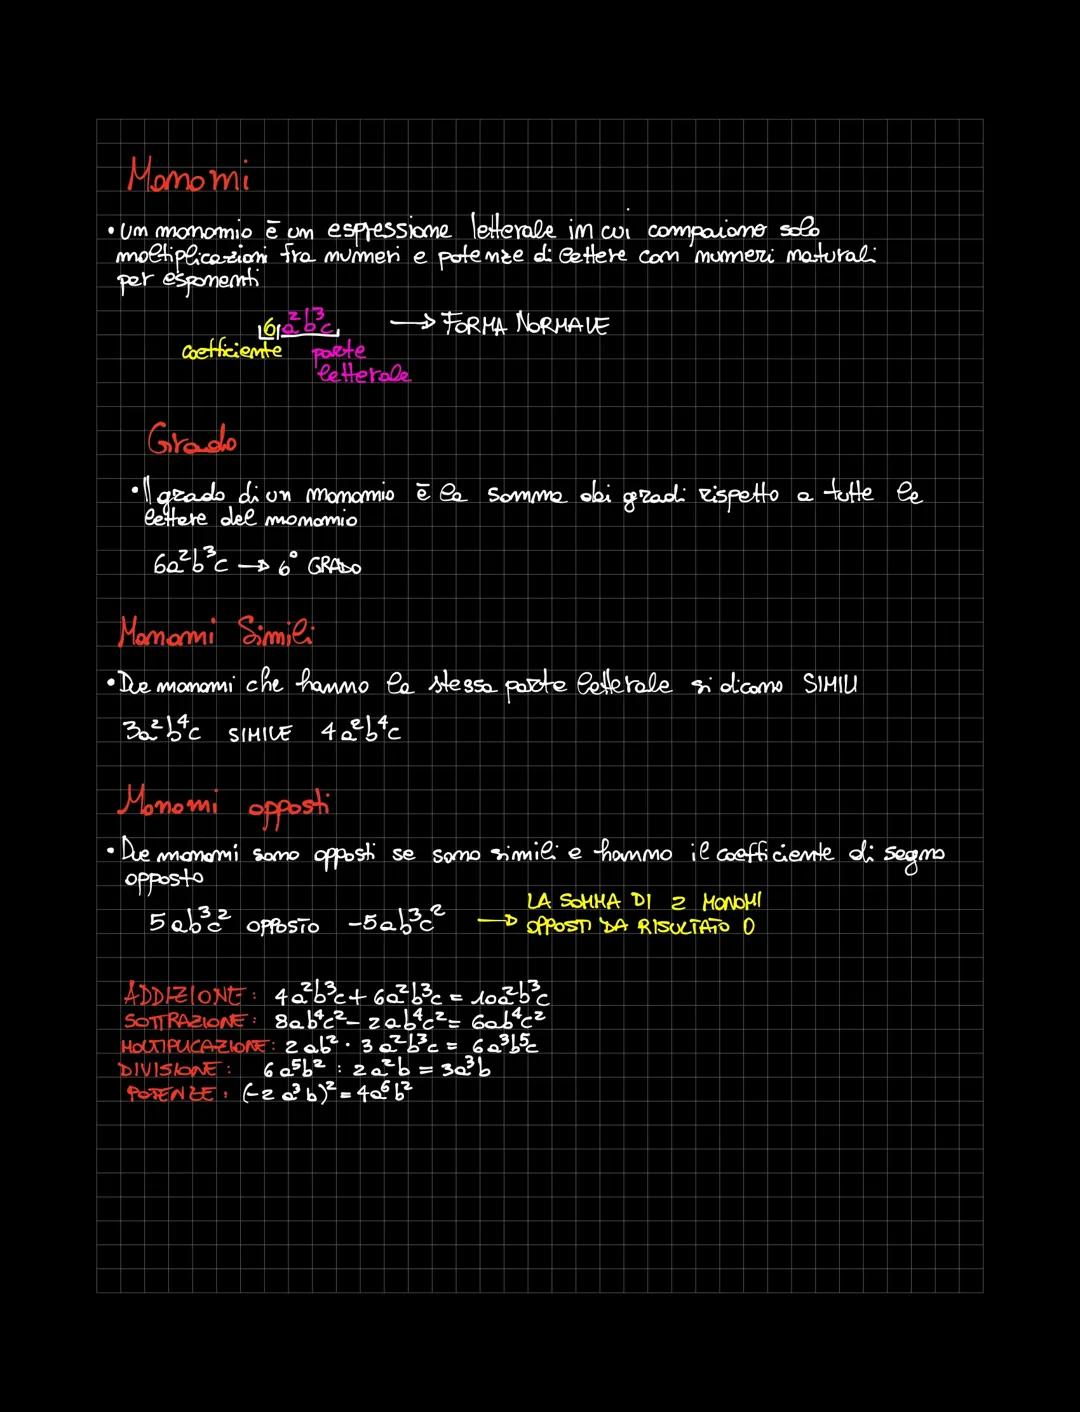 Monomi
• un monomio ē un espressione letterale in cui compaiono solo
moltiplicazioni fra numeri e potenze di lettere con numeri naturali
per esponenti
6a²b³c → FORMA NORMALE
coefficiente parte
letterale
Grado
• Il grado di un monomio ē la somma dei gradi rispetto a tutte le
lettere del monomio
6a²b³c → 6° GRADO
Monomi Simili
• Due monomi che hanno la stessa parte letterale si dicono SIMILI
3a²b⁴c SIMILE 4a²b⁴c
Monomi opposti
• Due monomi sono opposti se sono simili e hanno il coefficiente di segno
opposto
5ab³c² OPPOSTO -5ab³c² → LA SOMMA DI 2 MONOMI
OPPOSTI DA RISULTATO 0
ADDIZIONE: 4a²b³c + 6a²b³c = 10a²b³c
SOTTRAZIONE: 8ab⁴c² - 2ab⁴c² = 6ab⁴c²
MOLTIPLICAZIONE: 2ab² · 3a²b³c = 6a³b⁵c
DIVISIONE: 6a⁵b² : 2a²b = 3a³b
POTENZE: (-2a³b)² = 4a⁶b²